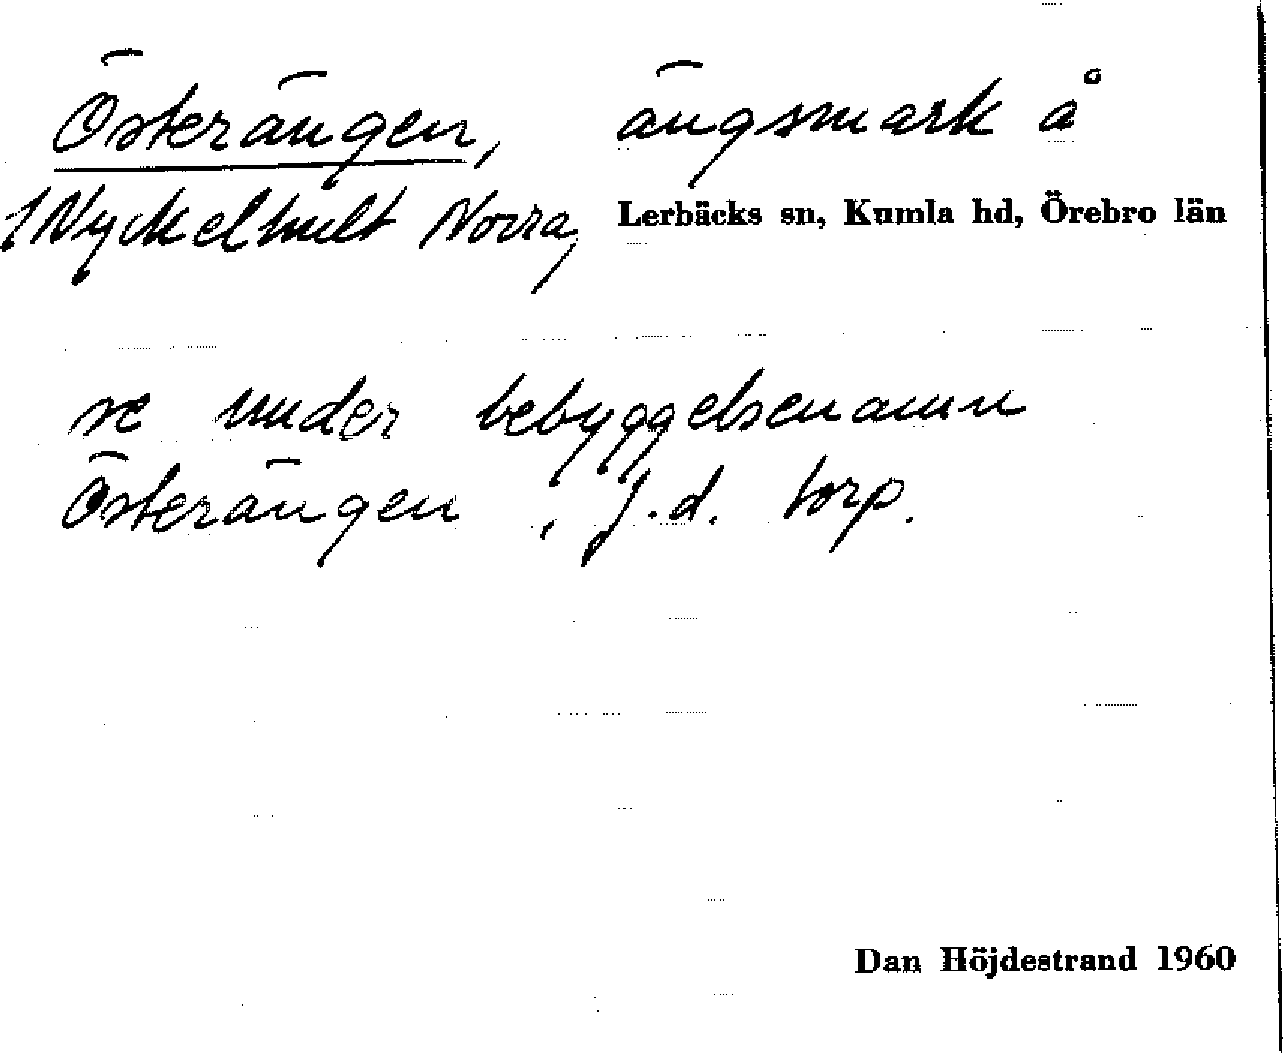 Österängen, ängsmark å
Nyckelhult Norra, Lerbäcks sn, Kumla hd, Örebro län
se under bebyggelsenamn
Österängen, f.d. torp.
Dan Höjdestrand 1960